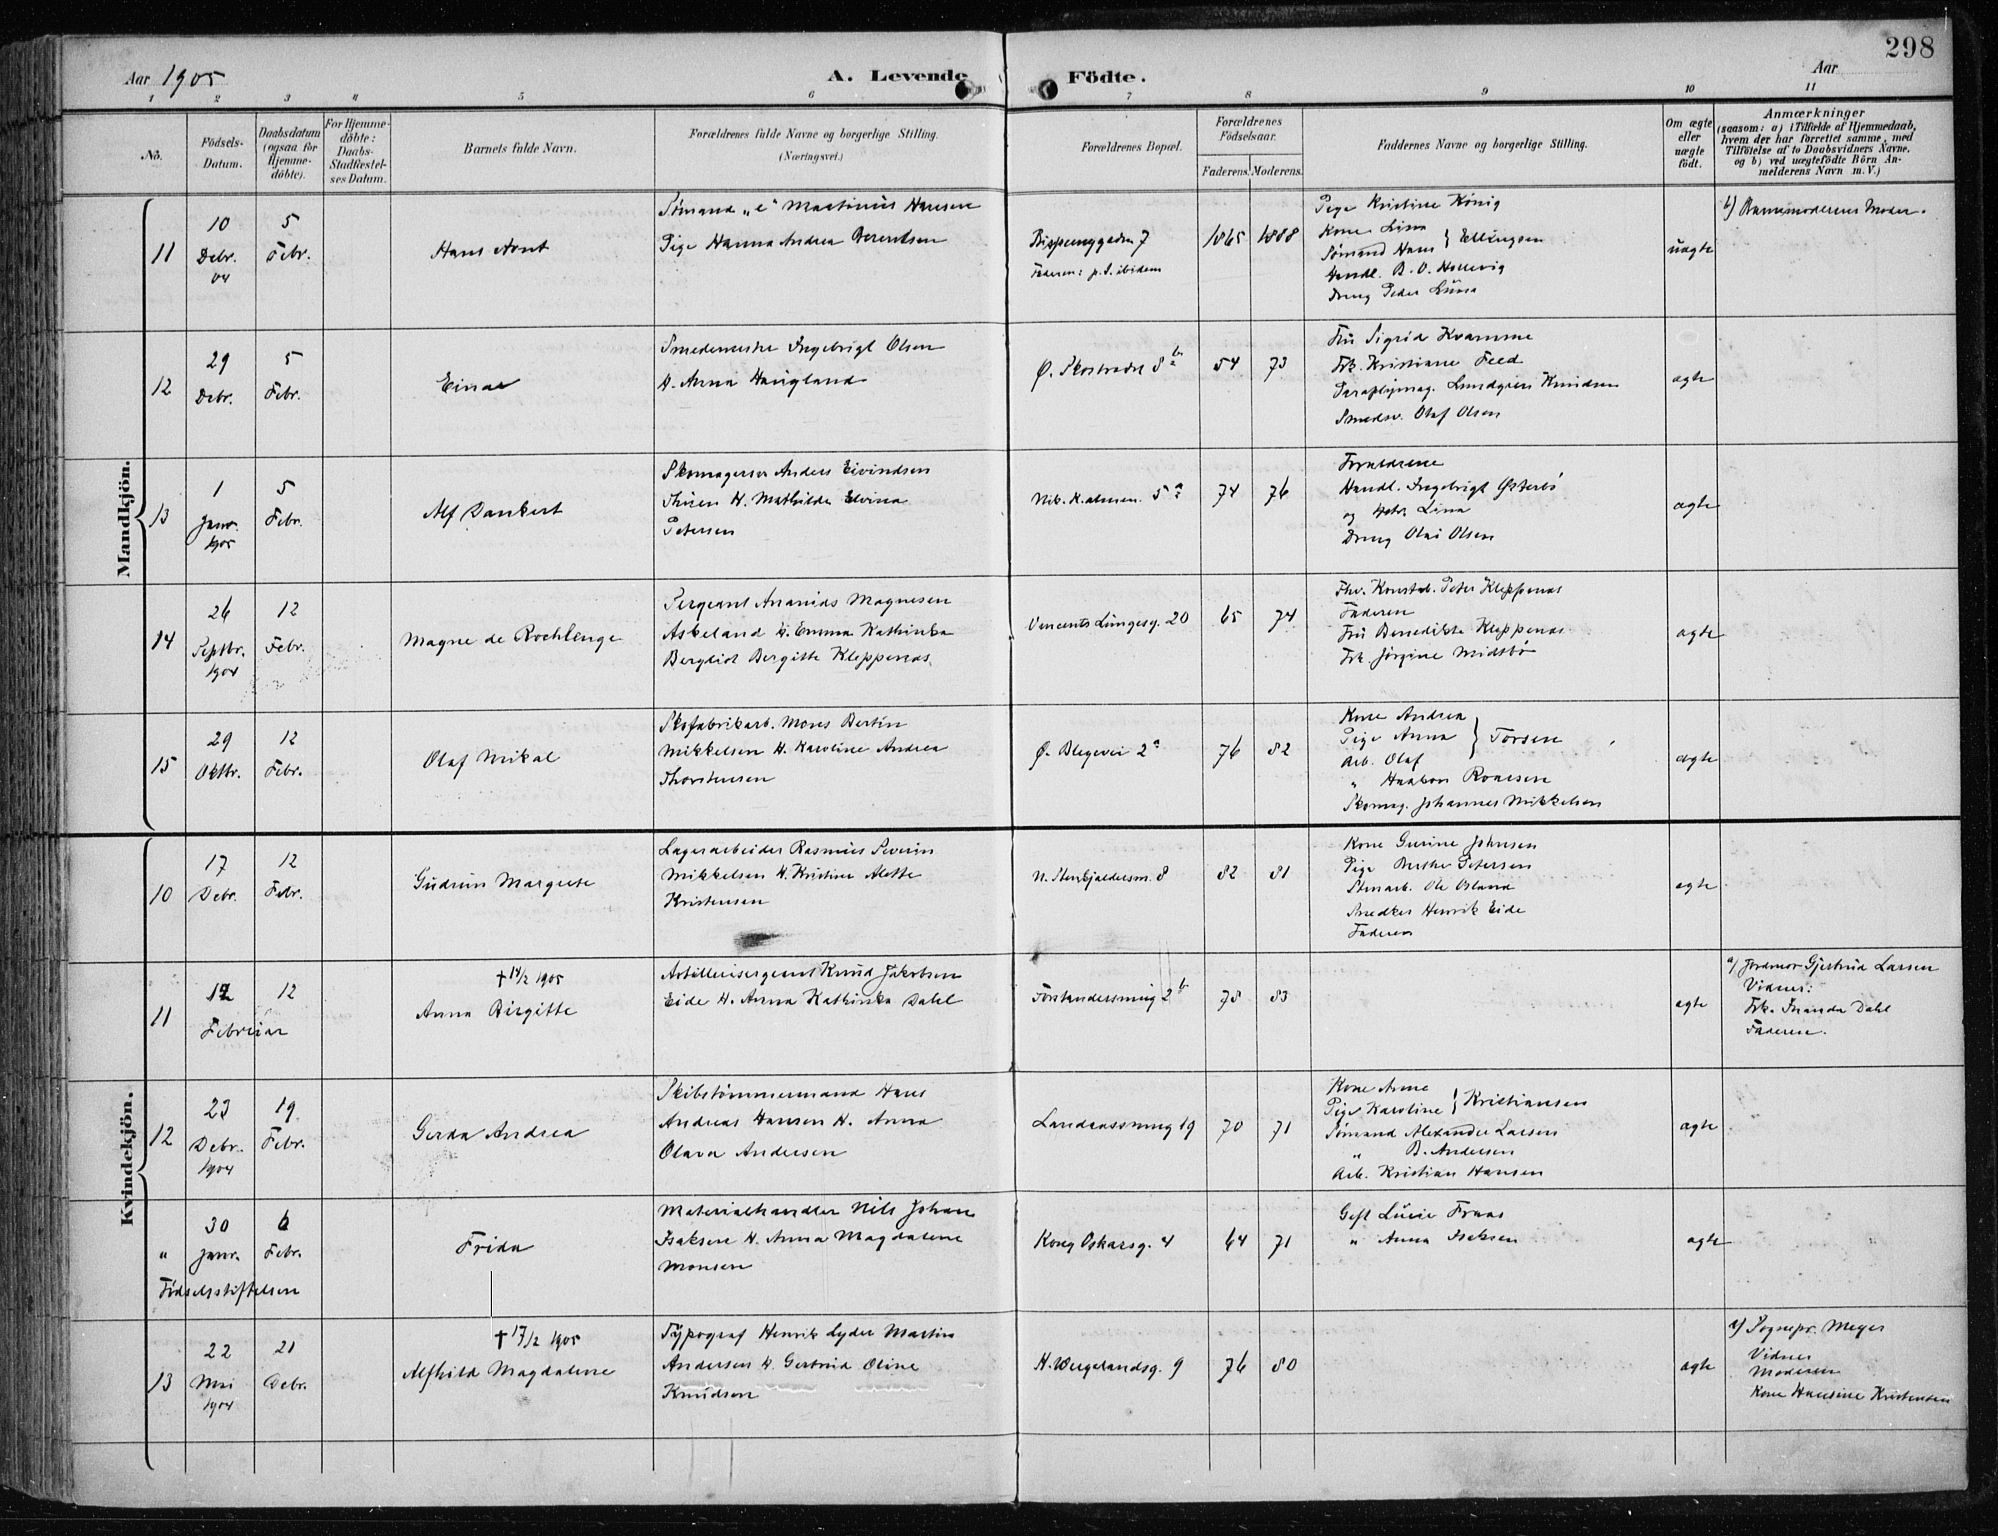 298
Aar 1905
A. Levende Födte.
Aar
1 2 3 4 5 6 7 8 9 10 11
No.
Födsels-Datum.
Daabsdatum (ogsaa for Hjemme-döbte).
For Hjemme-döbte: Daabs-Stadfæstel-ses Datum.
Barnets fulde Navn.
Forældrenes fulde Navne og borgerlige Stilling.
(Næringsvei.)
Forældrenes Bopæl.
Forældrenes Födselsaar.
Faderens. Moderens.
Faddernes Navne og borgerlige Stilling.
Om ægte eller uægte födt.
Anmærkninger
(saasom: a) i Tilfælde af Hjemmedaab, hvem der har forrettet samme, med Tilföielse af to Daabsvidners Navne, og b) ved uægtefödte Börn An-melderens Navn m. V.)
Mandkjön.
11
10 Debr. 04
5 Febr.
Hans Arnt
Sømand "e" Martinius Hansen
Pige Hanna Andrea Berentsen
7
Faderen: p. S. ibidem
1865 1888
Pige Kristine König
Kone Lina
Sømand Hans } Ellingsen
Handl. B. O. Hellevig
Dreng Peder
uægte
b) Barnemoderens Moder.
12
29 Debr.
5 Febr.
Einar
Smedemester Ingebrigt Olsen
H. Anna Haugland
Ø. Skostrædet 8 b
54 73
Fru Sigrid Kvamme
Frk. Kristiane Feed
Paraplymag. Lundgren Knudsen
Smedsv. Olaf Olsen
ægte
13
1 Janr. 1905
5 Febr.
Alf Dankert
Skomagersv Anders Eivindsen
H. Mathilde Elvina
Petersen
Nik. K. almen. 5 a
74 76
Forældrene
Handl. Ingebrigt Østerbø
og Hstr. Lina
Dreng Olai Olsen
ægte
14
26 Septbr. 1904
12 Febr.
Magne de Rochlenge
Sergeant Ananias Magnesen
Askeland H. Emma Kathinka
Bergliot Bergitte Kleppenæs.
Vincents Lungesg. 20
65 74
Fhv. Konstab. Peter Kleppenæs
Faderen
Fru Benedikte Kleppenæs
Frk. Jørgine Midtbø
ægte
15
29 Oktbr.
12 Febr.
Olaf Mikal
Skofabrikarb. Mons Bertin
Mikkelsen H. Karoline Andrea
Thorstensen
Ø. Blegevei 2 a
76 82
Kone Andrea
Pige Anna } Torsen
Arb. Olaf
" Haakon Roaesen
Skomag. Johannes Mikkelsen
ægte
Kvindekjön.
10
17 Debr.
12 Febr.
Gudrun Margrete
Lagerarbeider Rasmus Severin
Mikkelsen H. Kristine Alette
Kristensen
N. Stenkjeldersm. 8
82 81
Kone Gurine Johnsen
Pige Berthe Petersen
Stenarb. Ole Øsland
Snedker Henrik Eide
Faderen
ægte
11
12 Februar
12
† 14/2 1905
Anna Birgitte
Artillerisergeant Knud Jakobsen
Eide H. Anna Kathinka Dahl
Forstandersmug 2 b
78 83
ægte
a) Jordmor Gjertrud Larsen
Vidner:
Frk. Inanda Dahl
Faderen.
12
23 Debr. 1904
19 Febr.
Gerda Andrea
Skibstømmermand Hans
Andreas Hansen H. Anna
Olava Andersen
Landraasmug 19
70 71
Kone Anne
Pige Karoline } Kristiansen
Sømand Alexander Larsen
" B. Andersen
Arb. Kristian Hansen
ægte
"
30 Janr.
6 Febr.
Fødselsstiftelsen
Frida
Materialhandler Nils Johan
Isaksen H. Anna Magdalene
Monsen
Kong Oskarsg. 4
64 71
Gift Lucie Fraas
" Anna Isaksen
ægte
13
22 Mai 1904
21 Debr.
† 17/2 1905
Alfhild Magdalene
Typograf Henrik Lyder Martin
Andersen H. Gertrud Oline
Knudsen
H. Wergelandsg. 9
76 80
ægte
a) Sognepr. Meyer
Vidner
Moderen
Kone Hansine Kristensen